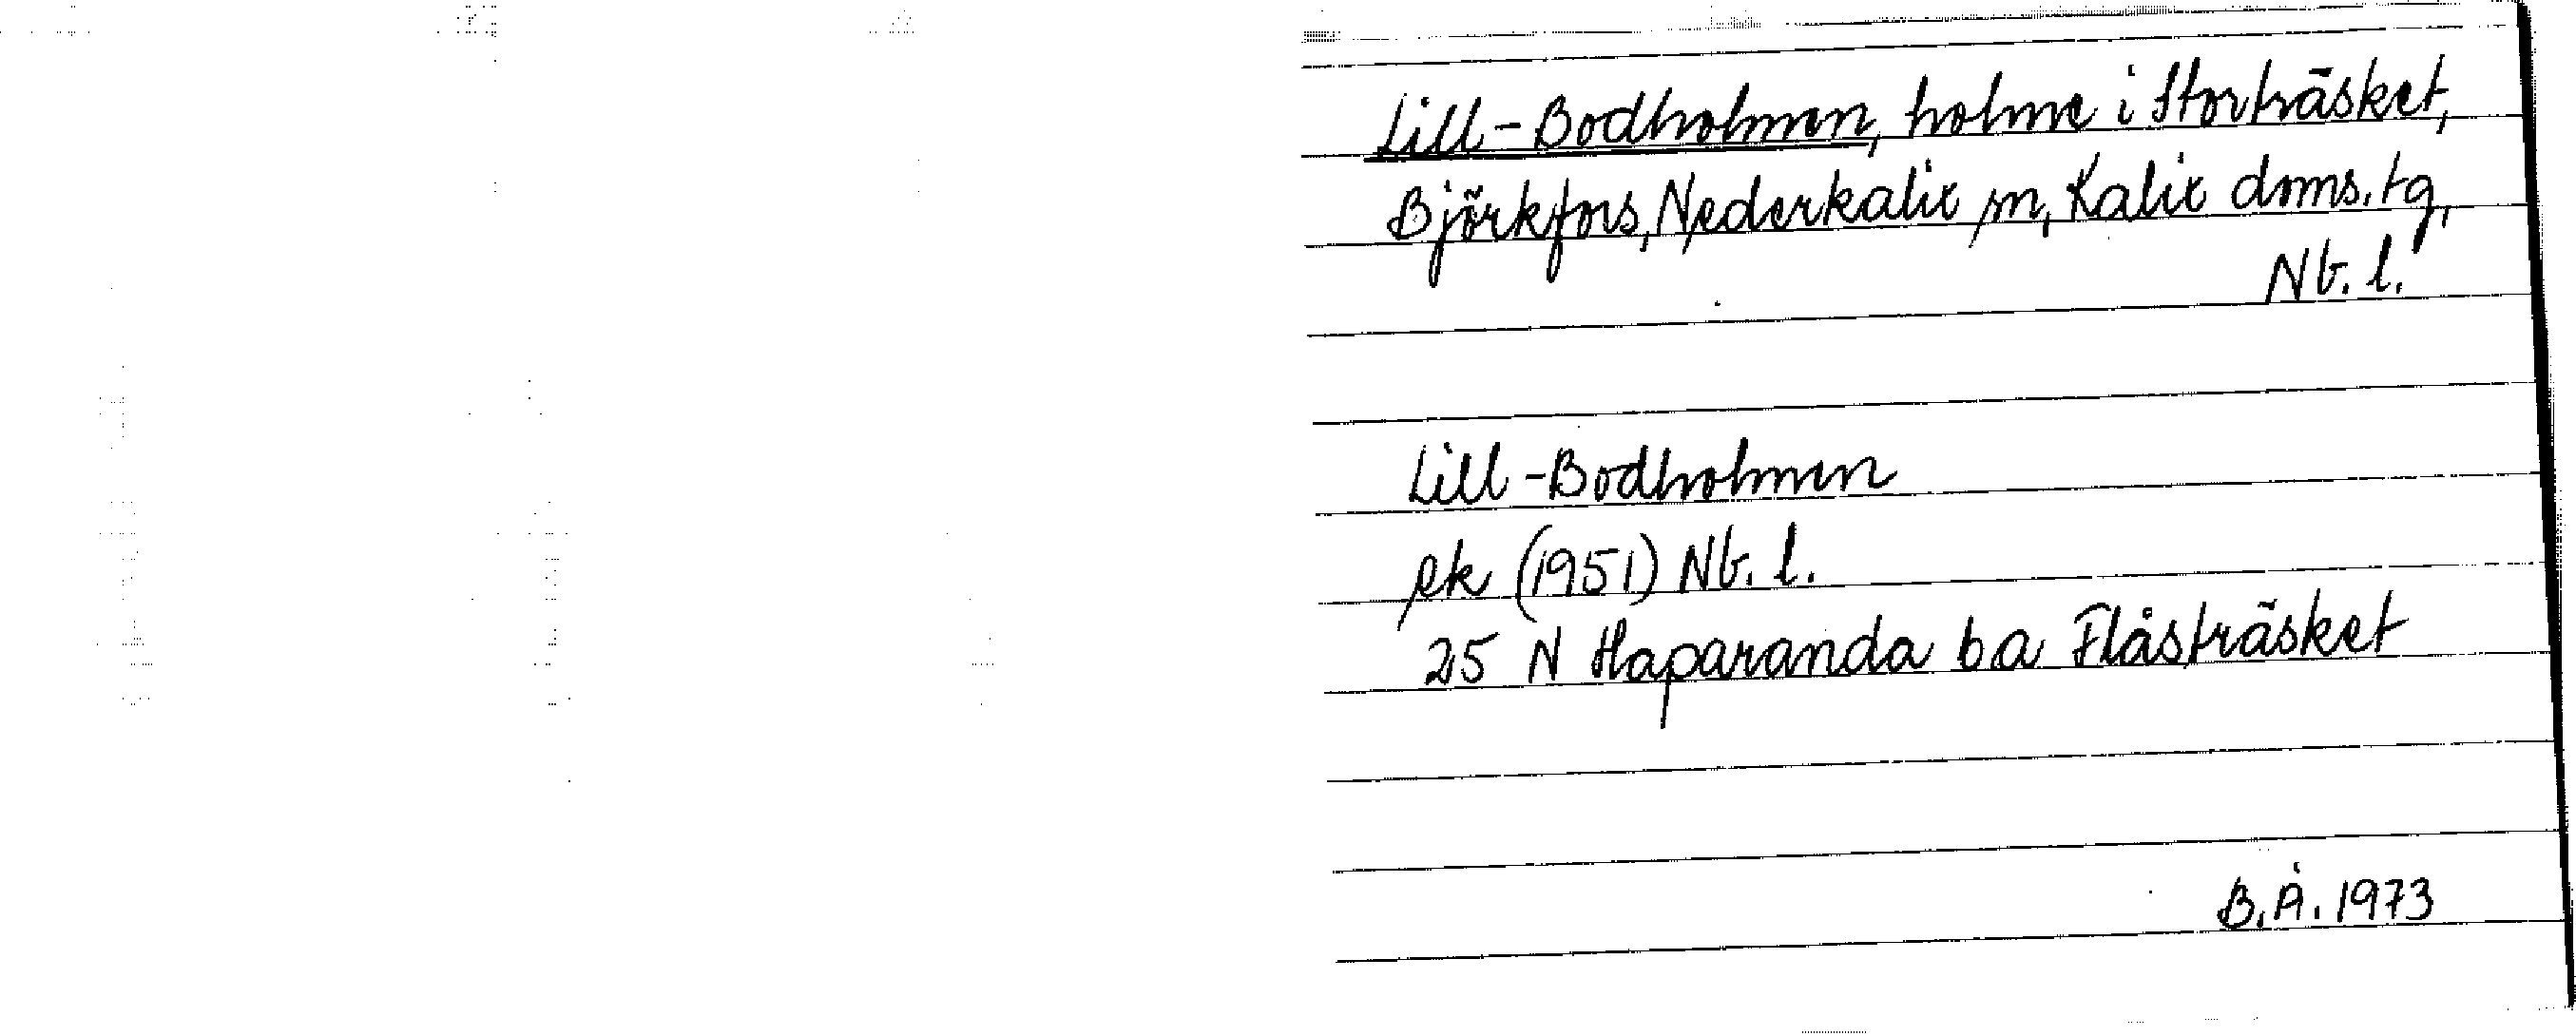 Lill-Bodholmen, holme i Storträsket,
Björkfors, Nederkalix sn, Kalix doms.tg,
Nb. l.
Lill-Bodholmen
ek (1951) Nb. l.
25 N Haparanda b a Flåsträsket
B.Å. 1973